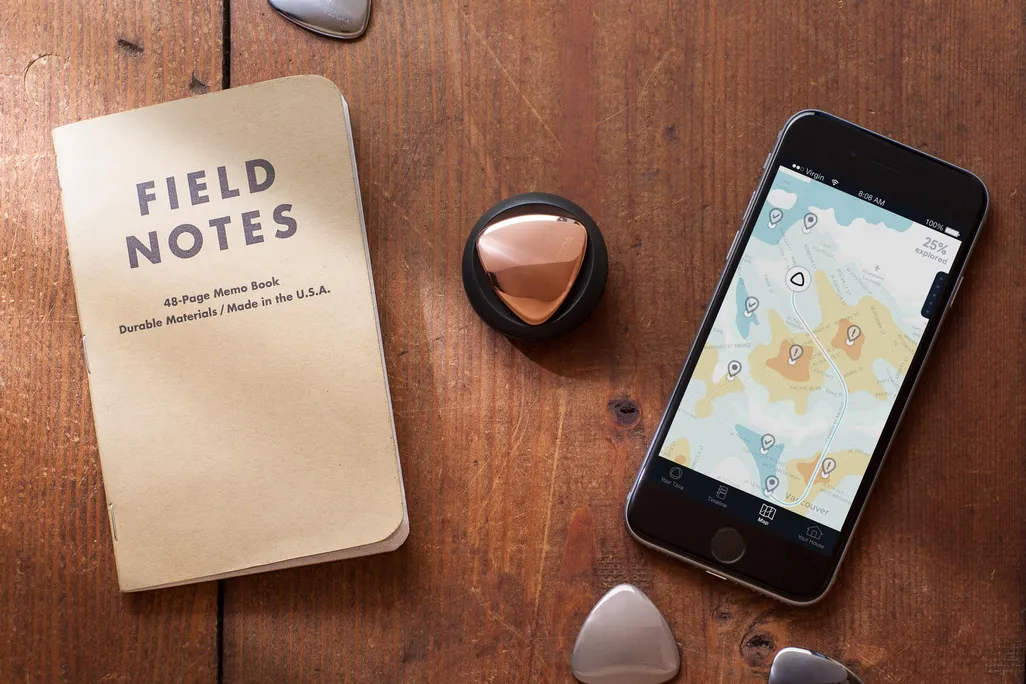 FIELD
NOTES
48-Page Memo Book
Durable Materials / Made in the U.S.A.
Virgin
8:08 AM
100%
25%
explored
Vancouver
Your Tzoa
Timeline
Map
Your Home